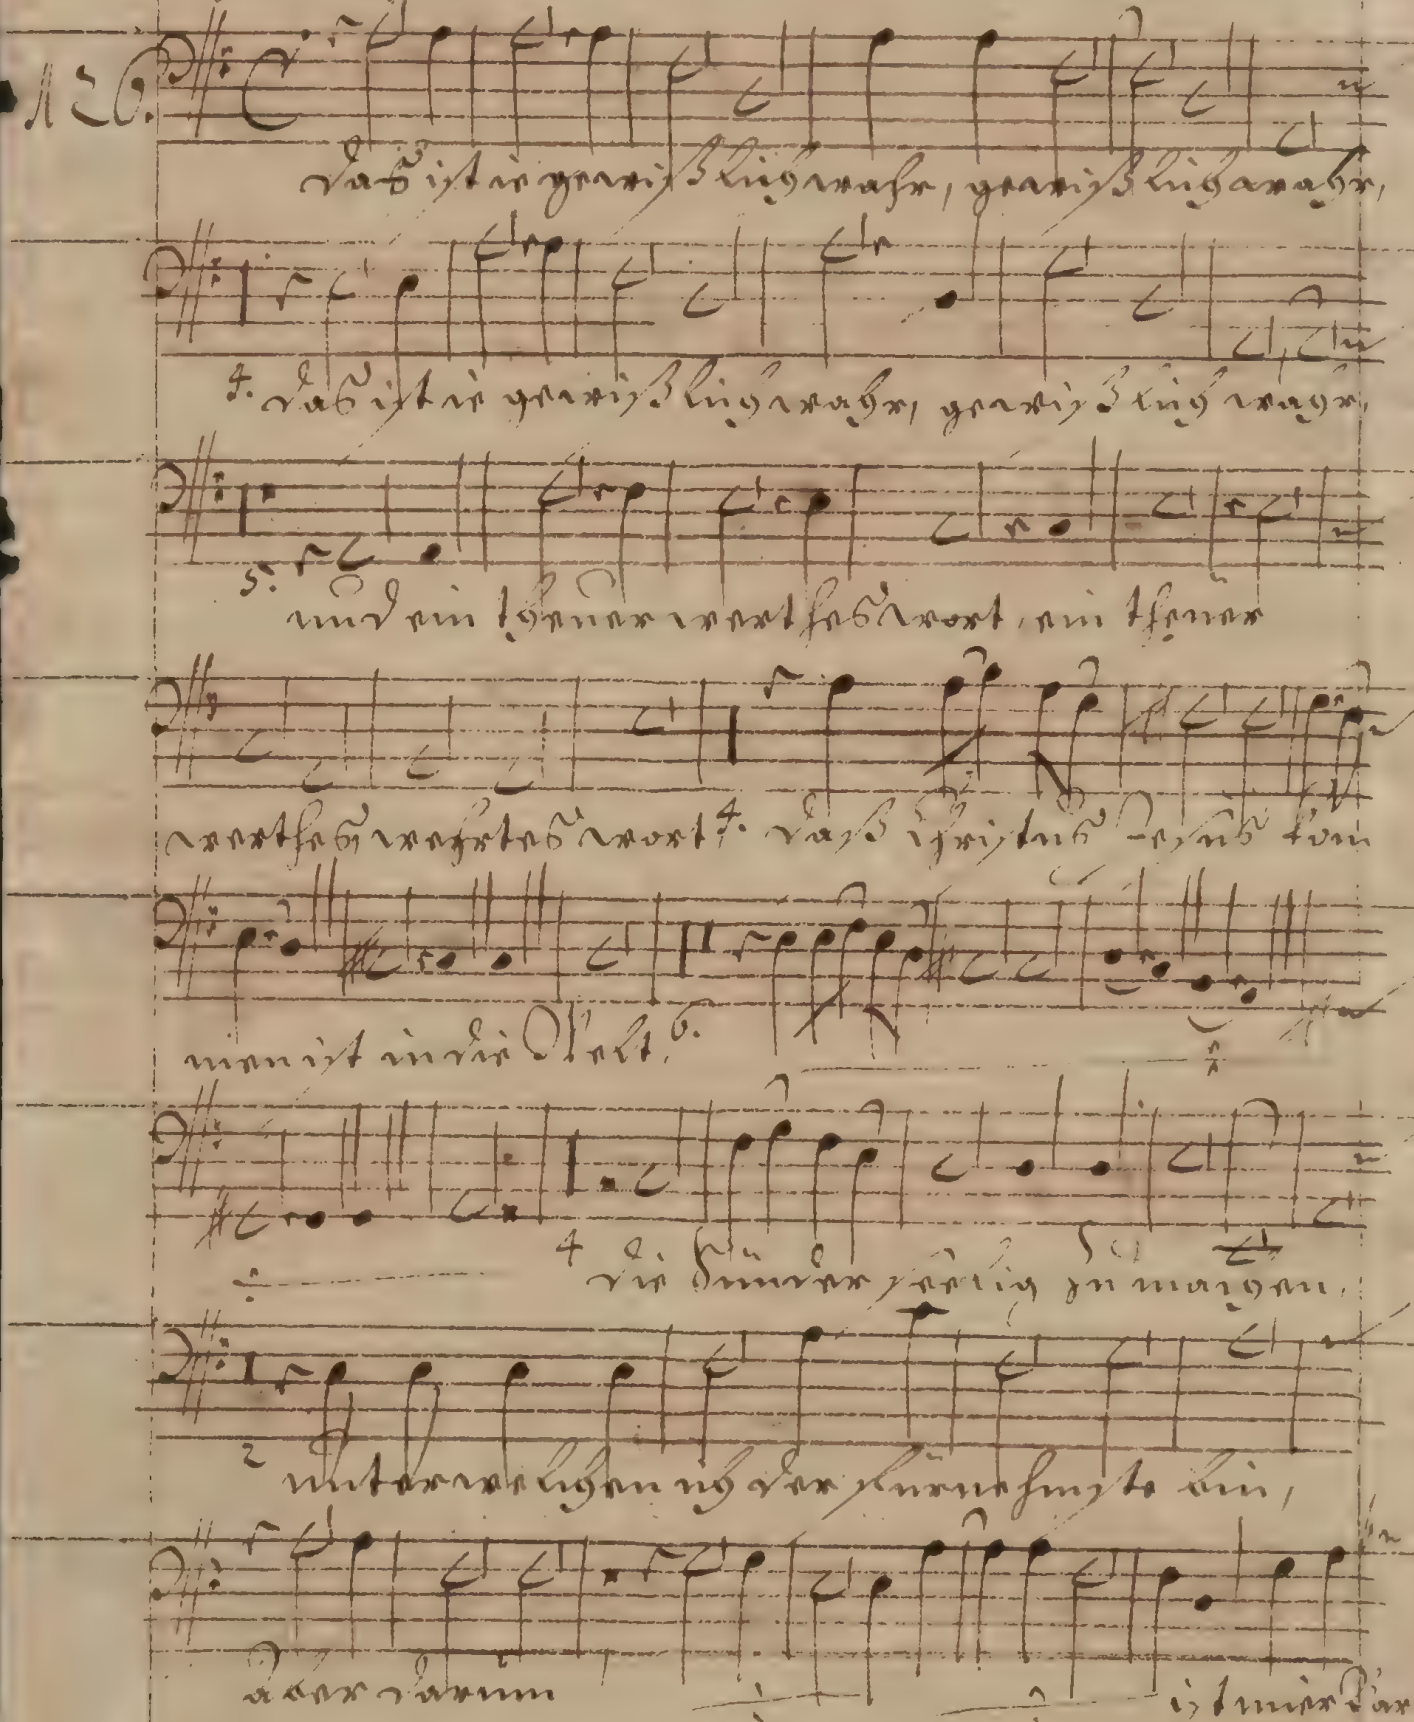 126.
Daß ist ie gewißlich wahr, gewißlich wahr,
4. Daß ist ie gewißlich wahr, gewißlich wahr,
5. und ein theuer werthes wort, ein theuer
werthes, wehrtes wort, 4. daß Christus Jesus kom
men ist in die Welt, 6.
4 die Sünder seelig zu machen,
2 unter welchen ich der fürnehmste bin,
aber darum ist mier Bar